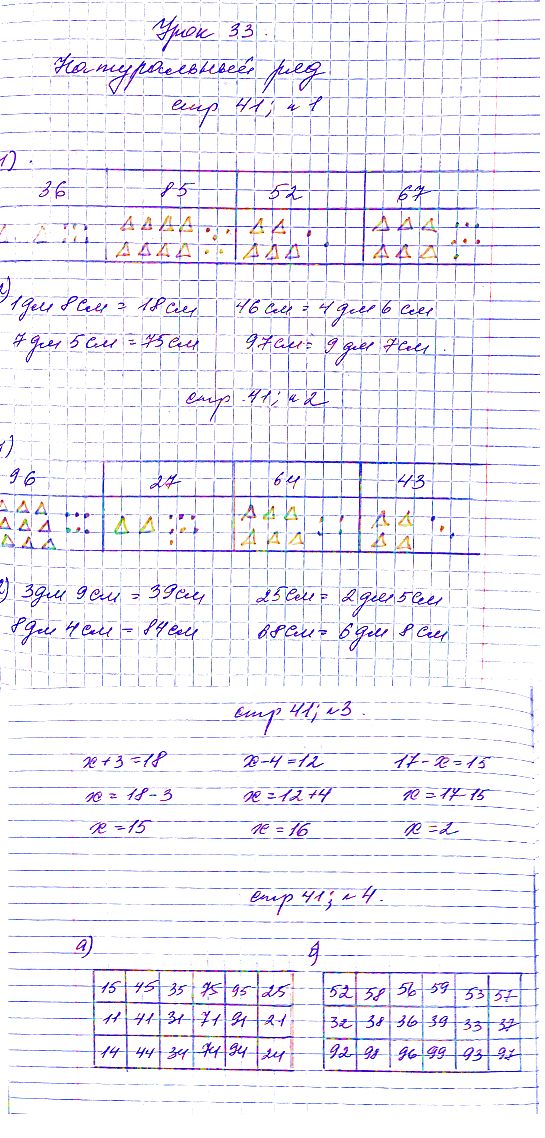 Урок 33.
Натуральный ряд
стр 41; н 1
1).
36 85 52 67
2)
1 дм 8 см = 18 см 46 см = 4 дм 6 см
7 дм 5 см = 75 см 97 см = 9 дм 7 см.
стр. 41; н 2
1)
96 27 64 43
2) 3 дм 9 см = 39 см 25 см = 2 дм 5 см
8 дм 4 см = 84 см 68 см = 6 дм 8 см
стр 41; н 3.
x + 3 = 18 x - 4 = 12 17 - x = 15
x = 18 - 3 x = 12 + 4 x = 17 15
x = 15 x = 16 x = 2
стр 41; н 4.
а) б)
15 45 35 75 95 25 52 58 56 59 53 57
11 41 31 71 91 21 32 38 36 39 33 37
14 44 34 74 94 24 92 98 96 99 93 97